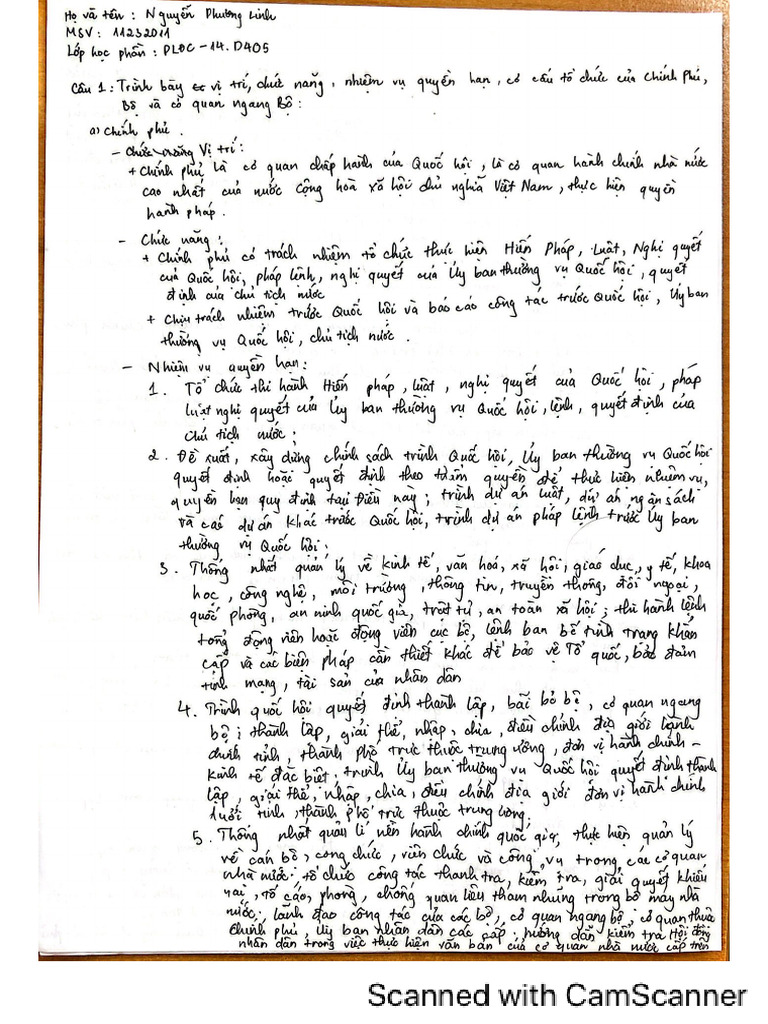 Họ và tên : Nguyễn Phương Linh
MSV : 11232011
Lớp học phần : PLĐC - 14. D405
Câu 1 : Trình bày vị trí, chức năng, nhiệm vụ quyền hạn, cơ cấu tổ chức của Chính Phủ,
Bộ và cơ quan ngang Bộ :
a) Chính phủ .
- Chức năng Vị trí :
+ Chính phủ là cơ quan chấp hành của Quốc hội, là cơ quan hành chính nhà nước
cao nhất của nước Cộng hòa xã hội chủ nghĩa Việt Nam, thực hiện quyền
hành pháp .
- Chức năng :
+ Chính phủ có trách nhiệm tổ chức thực hiện Hiến Pháp, Luật, Nghị quyết
của Quốc hội, pháp lệnh, nghị quyết của Ủy ban thường vụ Quốc hội, quyết
định của chủ tịch nước
+ Chịu trách nhiệm trước Quốc hội và báo cáo công tác trước Quốc hội, Ủy ban
thường vụ Quốc hội, chủ tịch nước .
- Nhiệm vụ quyền hạn :
1. Tổ chức thi hành Hiến pháp, luật, nghị quyết của Quốc hội, pháp
luật nghị quyết của Ủy ban thường vụ Quốc hội, lệnh, quyết định của
chủ tịch nước ;
2. Đề xuất, xây dựng chính sách trình Quốc hội, Ủy ban thường vụ Quốc hội
quyết định hoặc quyết định theo thẩm quyền để thực hiện nhiệm vụ,
quyền hạn quy định tại Điều này ; trình dự án luật, dự án ngân sách
và các dự án khác trước Quốc hội, trình dự án pháp lệnh trước Ủy ban
thường vụ Quốc hội ;
3. Thống nhất quản lý về kinh tế, văn hoá, xã hội, giáo dục, y tế, khoa
học, công nghệ, môi trường, thông tin, truyền thông, đối ngoại,
quốc phòng, an ninh quốc gia, trật tự, an toàn xã hội ; thi hành lệnh
tổng động viên hoặc động viên cục bộ, lệnh ban bố tình trạng khẩn
cấp và các biện pháp cần thiết khác để bảo vệ Tổ quốc, bảo đảm
tính mạng, tài sản của nhân dân
4. Trình quốc hội quyết định thành lập, bãi bỏ bộ, cơ quan ngang
bộ ; thành lập, giải thể, nhập, chia, điều chỉnh địa giới hành
chính tỉnh, thành phố trực thuộc trung ương, đơn vị hành chính -
kinh tế đặc biệt, trình Ủy ban thường vụ Quốc hội quyết định thành
lập, giải thể, nhập, chia, điều chỉnh địa giới đơn vị hành chính
dưới tỉnh, thành phố trực thuộc trung ương;
5. Thống nhất quản lí nền hành chính quốc gia, thực hiện quản lý
về cán bộ, công chức, viên chức và công vụ trong các cơ quan
nhà nước ; tổ chức công tác thanh tra, kiểm tra, giải quyết khiếu
nại, tố cáo, phòng, chống quan liêu tham nhũng trong bộ máy nhà
nước; lãnh đạo công tác của các bộ, cơ quan ngang bộ, cơ quan thuộc
Chính phủ, Ủy ban nhân dân các cấp ; hướng dẫn kiểm tra Hội đồng
nhân dân trong việc thực hiện văn bản của cơ quan nhà nước cấp trên
Scanned with CamScanner